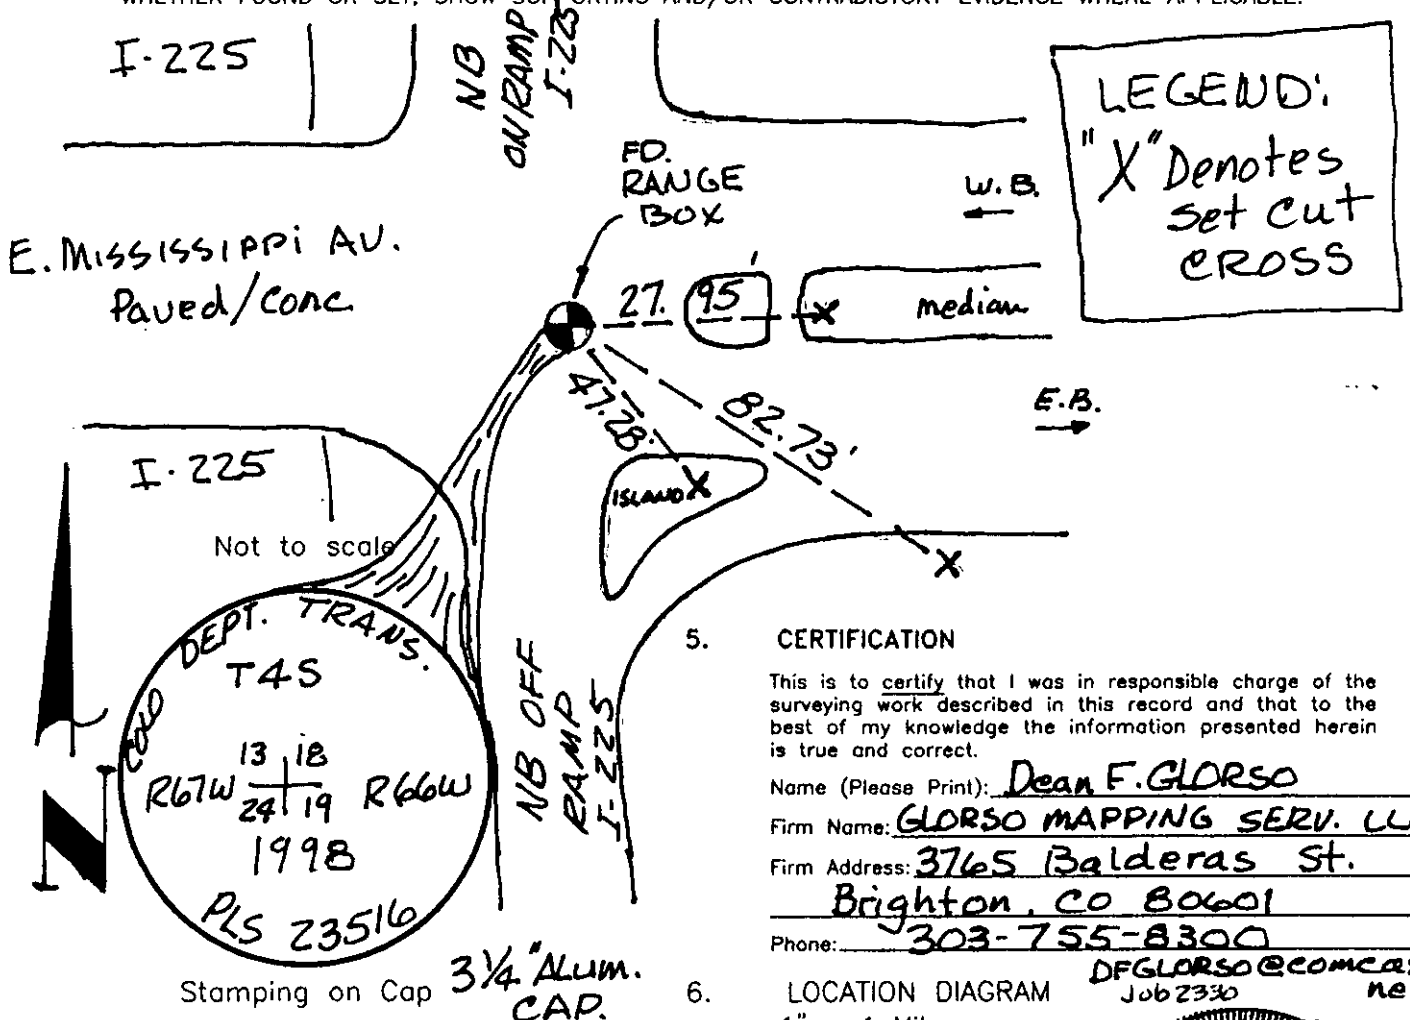 WHETHER FOUND OR SET, SHOW SUPPORTING AND/OR CONTRADICTORY EVIDENCE WHERE APPLICABLE.
I-225
NB
ONRAMP
I-225
LEGEND:
"X" Denotes
set cut
CROSS
FD.
RANGE
BOX
W.B.
E. MISSISSIPPI AV.
Paved/Conc
27.95'
median
47.28'
82.73'
E.B.
I-225
ISLAND
Not to scale
COLO DEPT. TRANS.
T4S
13 18
R67W R66W
24 19
1998
PLS 23516
N
NB OFF
RAMP
I-225
Stamping on Cap
3 1/4" ALUM.
CAP.
5. CERTIFICATION
This is to certify that I was in responsible charge of the
surveying work described in this record and that to the
best of my knowledge the information presented herein
is true and correct.
Name (Please Print): Dean F. GLORSO
Firm Name: GLORSO MAPPING SERV. LL
Firm Address: 3765 Balderas St.
Brighton, CO 80601
Phone: 303-755-8300
DFGLORSO@comcas
ne
Job 2330
6. LOCATION DIAGRAM